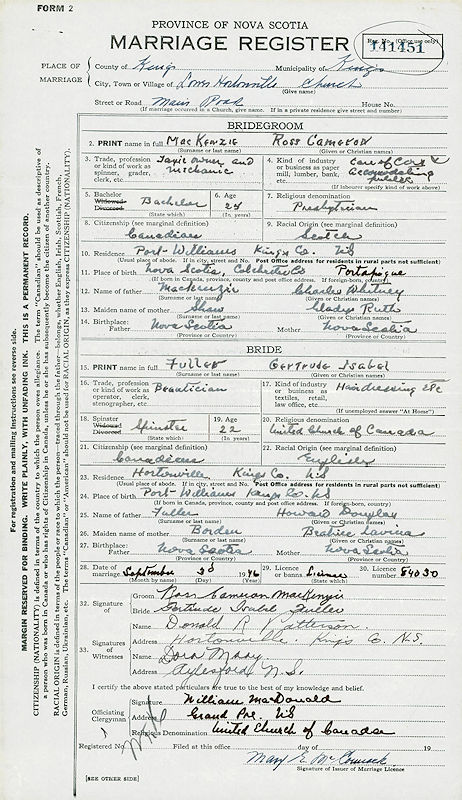 FORM 2
PROVINCE OF NOVA SCOTIA
MARRIAGE REGISTER
Reg. No. (Office use only)
141451
PLACE OF MARRIAGE
County of Kings Municipality of Kings
City, Town or Village of Hortonville Church
(Give name)
Street or Road Main Road House No.
(If marriage occurred in a Church, give name. If in a private residence give street and number)
BRIDEGROOM
2. PRINT name in full MacKenzie Ross Cameron
(Surname or last name) (Given or Christian names)
3. Trade, profession or kind of work as spinner, grader, clerk, etc. Taxi owner and mechanic
4. Kind of industry or business as paper mill, lumber, bank, etc.
(If Inbearer specify kind of work above)
5. Bachelor Widowed Divorced Bachelor
(State which)
6. Age 24
(In years)
7. Religious denomination
Presbyterian
8. Citizenship (see marginal definition)
Canadian
9. Racial Origin (see marginal definition)
Scotch
10. Residence Port-Williams Kings Co. NS
(Usual place of abode. If in city, street and no. Post Office address for residents in rural parts not sufficient)
11. Place of birth Nova Scotia, Colchester Co Portapique
(If in Canada, province, county and post office. If foreign-born, country)
12. Name of father MacKenzie Charles Whitney
(Surname or last name) (Given or Christian names)
13. Maiden name of mother Shaw Gladys Ruth
(Surname or last name) (Given or Christian names)
14. Birthplace: Father Nova Scotia Mother Nova Scotia
(Province or Country) (Province or Country)
BRIDE
15. PRINT name in full Fuller Gertrude Isabel
(Surname or last name) (Given or Christian names)
16. Trade, profession or kind of work as operator, clerk, stenographer, etc. Beautician
17. Kind of industry or business as textiles, retail, law office, etc. Hairdressing etc
(If unemployed answer "At Home")
18. Spinster Widowed Divorced Spinster
(State which)
19. Age 22
(In years)
20. Religious denomination
United Church of Canada
21. Citizenship (see marginal definition)
Canadian
22. Racial Origin (see marginal definition)
English
23. Residence Hortonville Kings Co. NS
(Usual place of abode. If in city, street and no. Post Office address for residents in rural parts not sufficient)
24. Place of birth Port-Williams Kings Co. NS
(If in Canada, province, county and post office address. If foreign-born, country)
25. Name of father Fuller Howard Douglas
(Surname or last name) (Given or Christian names)
26. Maiden name of mother Borden Beatrice Lavinia
(Surname or last name) (Given or Christian names)
27. Birthplace: Father Nova Scotia Mother Nova Scotia
(Province or Country) (Province or Country)
28. Date of marriage September 3d 1946
(Month by name) (Day)
29. Licence or banns License
(State which)
30. Licence number 84030
32. Signature of
Groom Ross Cameron MacKenzie
Bride Gertrude Isabel Fuller
33. Signatures of Witnesses
Name Donald R Patterson.
Address Hortonville. Kings Co. N.S.
Name Dora
Address Aylesford N.S.
I certify the above stated particulars are true to the best of my knowledge and belief.
Officiating Clergyman
Signature William MacDonald
Address Grand Pre. NS
Religious Denomination United Church of Canada
Registered No. Filed at this office day of 19
Mary E. McCormick
Signature of Issuer of Marriage Licence
[SEE OTHER SIDE]
For registration and mailing instructions see reverse side.
MARGIN RESERVED FOR BINDING. WRITE PLAINLY, WITH UNFADING INK. THIS IS A PERMANENT RECORD.
CITIZENSHIP (NATIONALITY) is defined in terms of the country to which the person owes allegiance. The term "Canadian" should be used as descriptive of a person who was born in Canada or who has rights of Citizenship in Canada, unless he or she has subsequently become the citizen of another country.
RACIAL ORIGIN is defined in terms of the people or race to which the person—traced through the father—belongs, whether English, Irish, Scottish, French, German, Russian, Ukrainian, etc. The terms "Canadian" or "American" should not be used for RACIAL ORIGIN, as they express CITIZENSHIP (NATIONALITY).